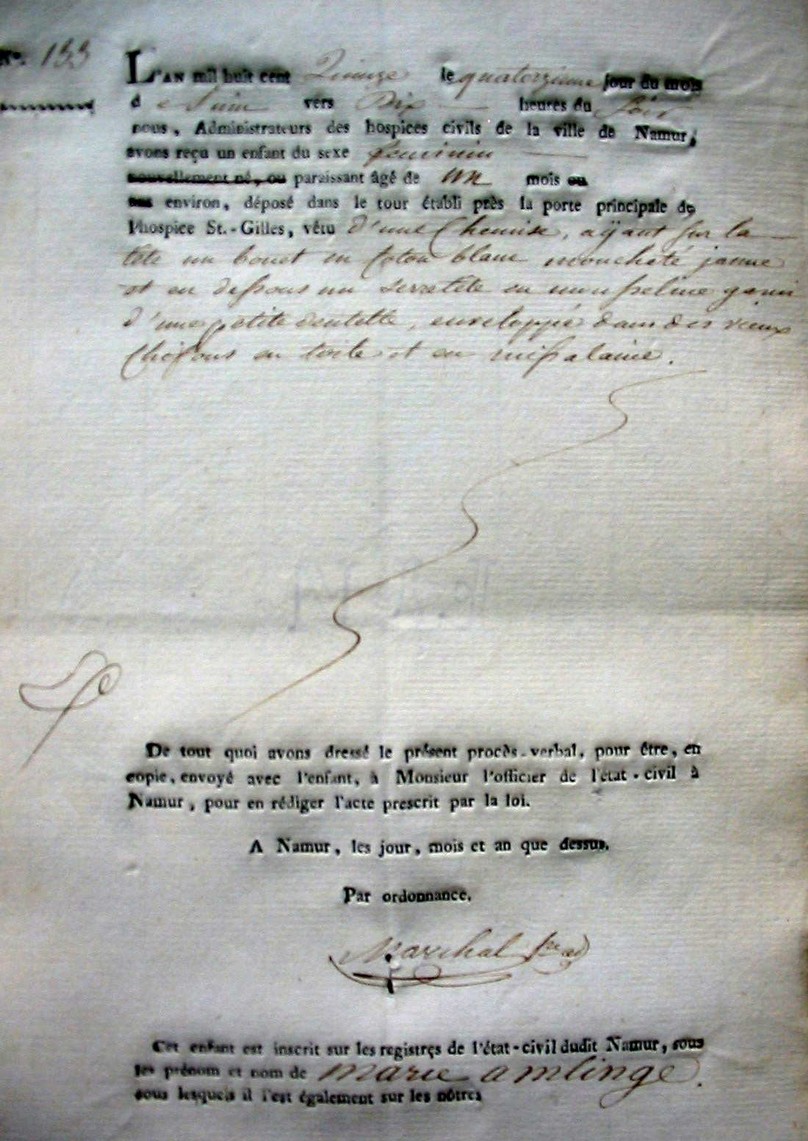 No. 133
L'AN mil huit cent Quinze le quatorzieme jour du mois
de Juin vers Dix heures du Soir
nous, Administrateurs des hospices civils de la ville de Namur,
avons reçu un enfant du sexe feminin
nouvellement né, ou paraissant âgé de un mois ou
environ, déposé dans le tour établi près la porte principale de
l'hospice St.-Gilles, vêtu d'une Chemise, ayant sur la
tete un bonet en Coton blanc moucheté jaune
et en dessous un serretete en mousseline garni
d'une petite dentelle, enveloppé dans des vieux
Chifons en toile et en
De tout quoi avons dressé le présent procès-verbal, pour être, en
copie, envoyé avec l'enfant, à Monsieur l'officier de l'état-civil à
Namur, pour en rédiger l'acte prescrit par la loi.
A Namur, les jour, mois et an que dessus.
Par ordonnance.
Marchal
Cet enfant est inscrit sur les registres de l'état-civil dudit Namur, sous
les prénom et nom de marie amlinge.
sous lesquels il l'est également sur les nôtres